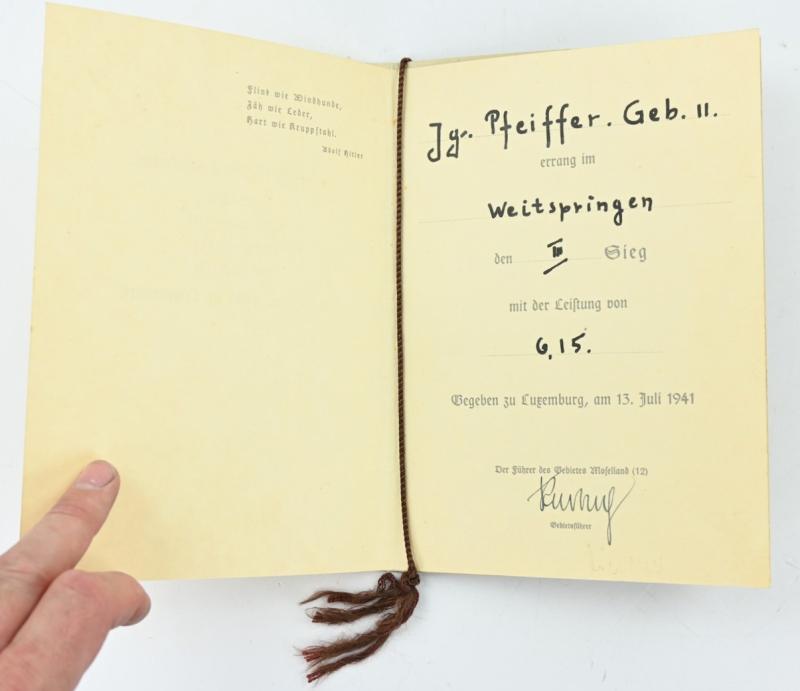 Flink wie Windhunde,
Zäh wie Leder,
Hart wie Kruppstahl.
Adolf Hitler
Jg. Pfeiffer. Geb. II.
errang im
Weitspringen
den III Sieg
mit der Leistung von
6,15.
Gegeben zu Luxemburg, am 13. Juli 1941
Der Führer des Gebietes Moselland (12)
Gebietsführer